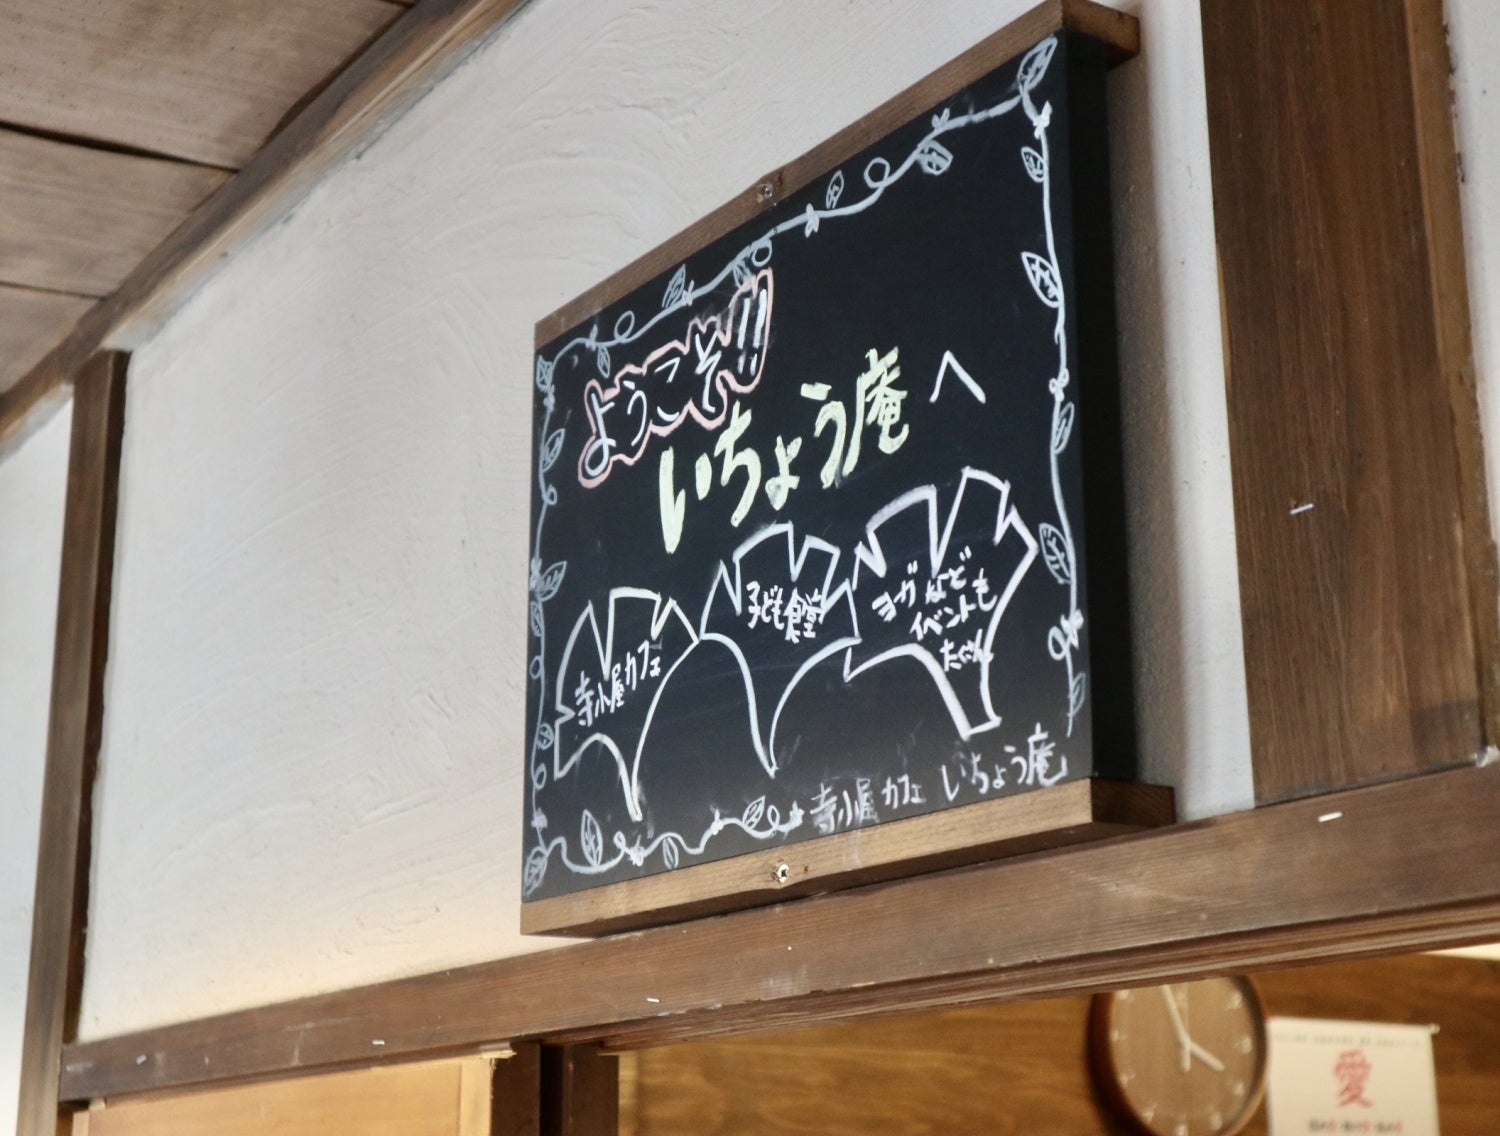 ようこそ!!
いちょう庵へ
寺小屋カフェ
子ども食堂
ヨガなど
イベントも
たくさん
寺小屋カフェ いちょう庵
愛